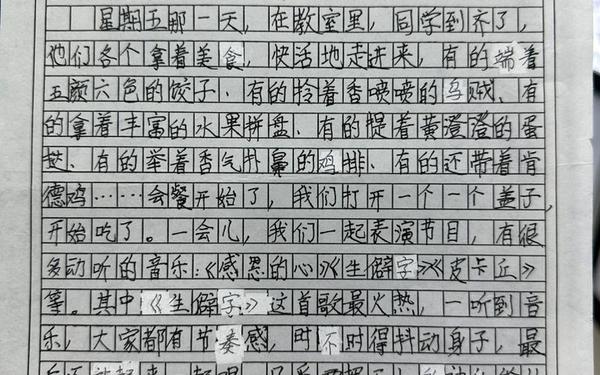 星期五那一天，在教室里，同学到齐了，
他们各个拿着美食，快活地走进来，有的端着
五颜六色的饺子、有的拎着香喷喷的乌贼、有
的拿着丰富的水果拼盘、有的提着黄澄澄的蛋
挞、有的举着香气扑鼻的鸡排、有的还带着肯
德鸡……会餐开始了，我们打开一个一个盖子，
开始吃了。一会儿，我们一起表演节目，有很
多动听的音乐：《感恩的心》《生僻字》《皮卡丘》
等。其中《生僻字》这首歌最火热，一听到音
乐，大家都有节奏感，时不时得抖动身子，最